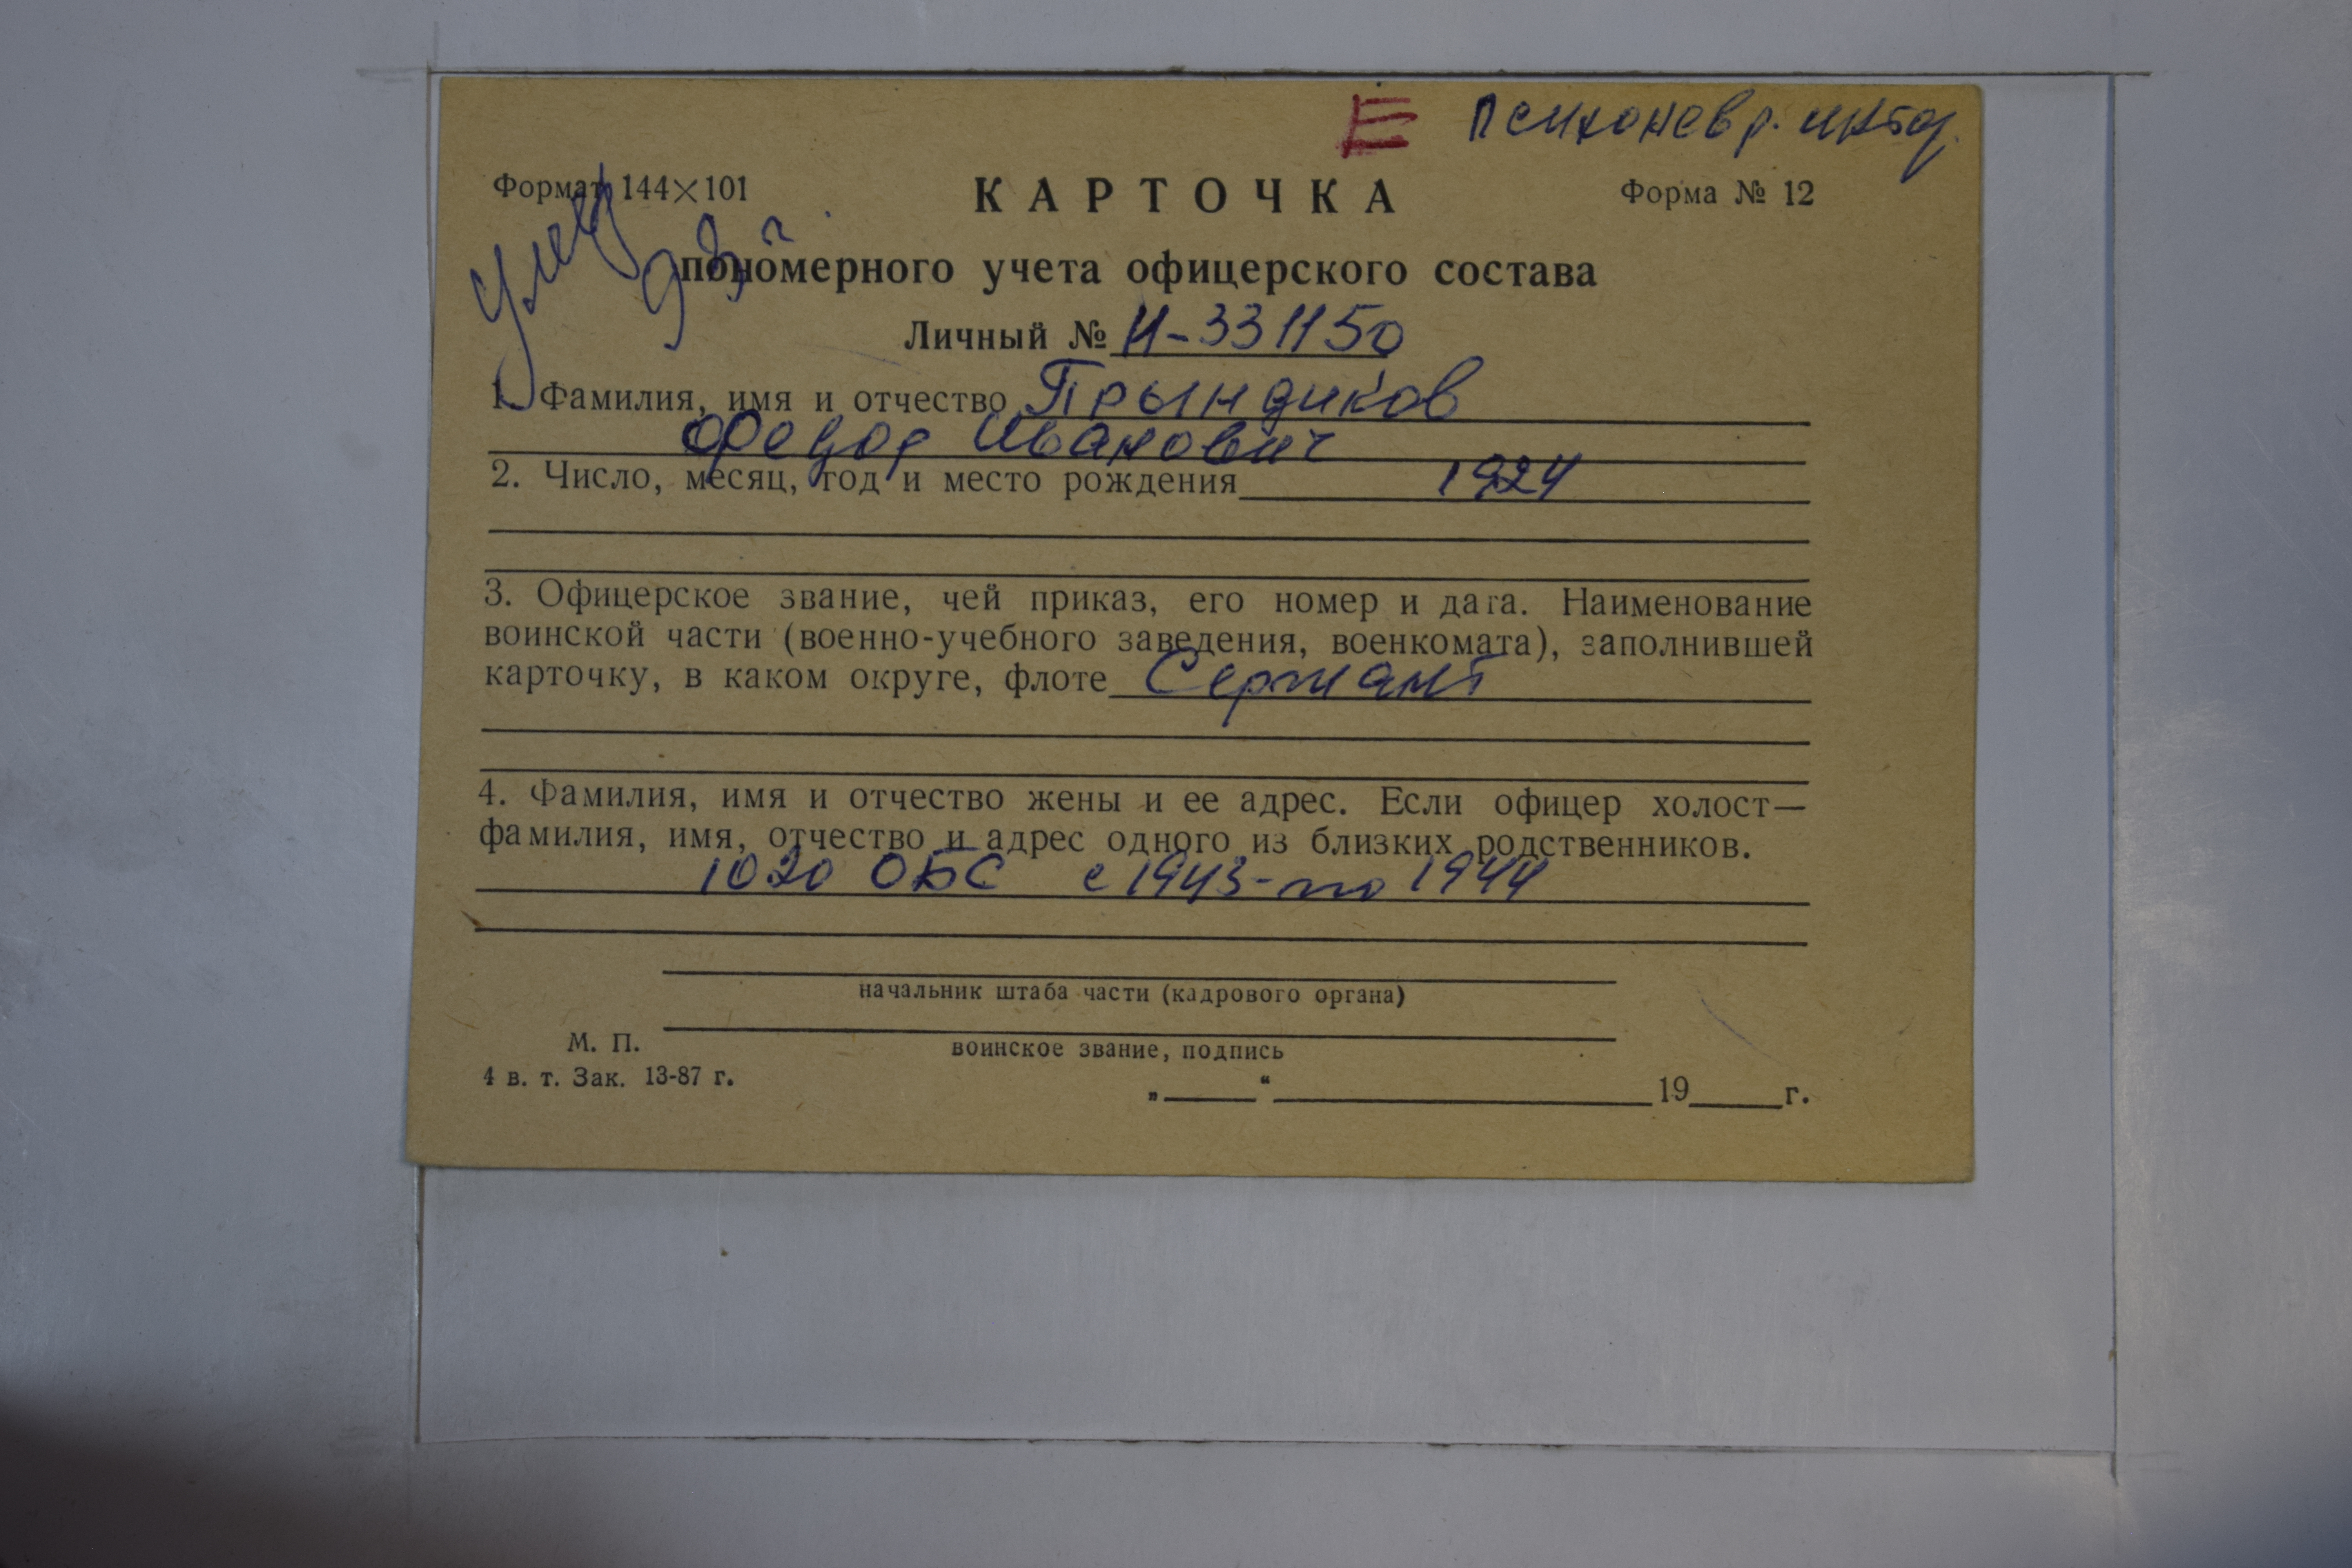 Е Психоневр. инт
Формат 144×101 КАРТОЧКА Форма № 12
Умер
93 г.
пономерного учета офицерского состава
Личный № И-331150
1. Фамилия, имя и отчество Прындиков
Федор Иванович
2. Число, месяц, год и место рождения 1924
3. Офицерское звание, чей приказ, его номер и дата. Наименование
воинской части (военно-учебного заведения, военкомата), заполнившей
карточку, в каком округе, флоте Сержант
4. Фамилия, имя и отчество жены и ее адрес. Если офицер холост—
фамилия, имя, отчество и адрес одного из близких родственников.
1020 ОБС с 1943- по 1944
начальник штаба части (кадрового органа)
М. П.
воинское звание, подпись
4 в. т. Зак. 13-87 г.
„ “ 19 г.